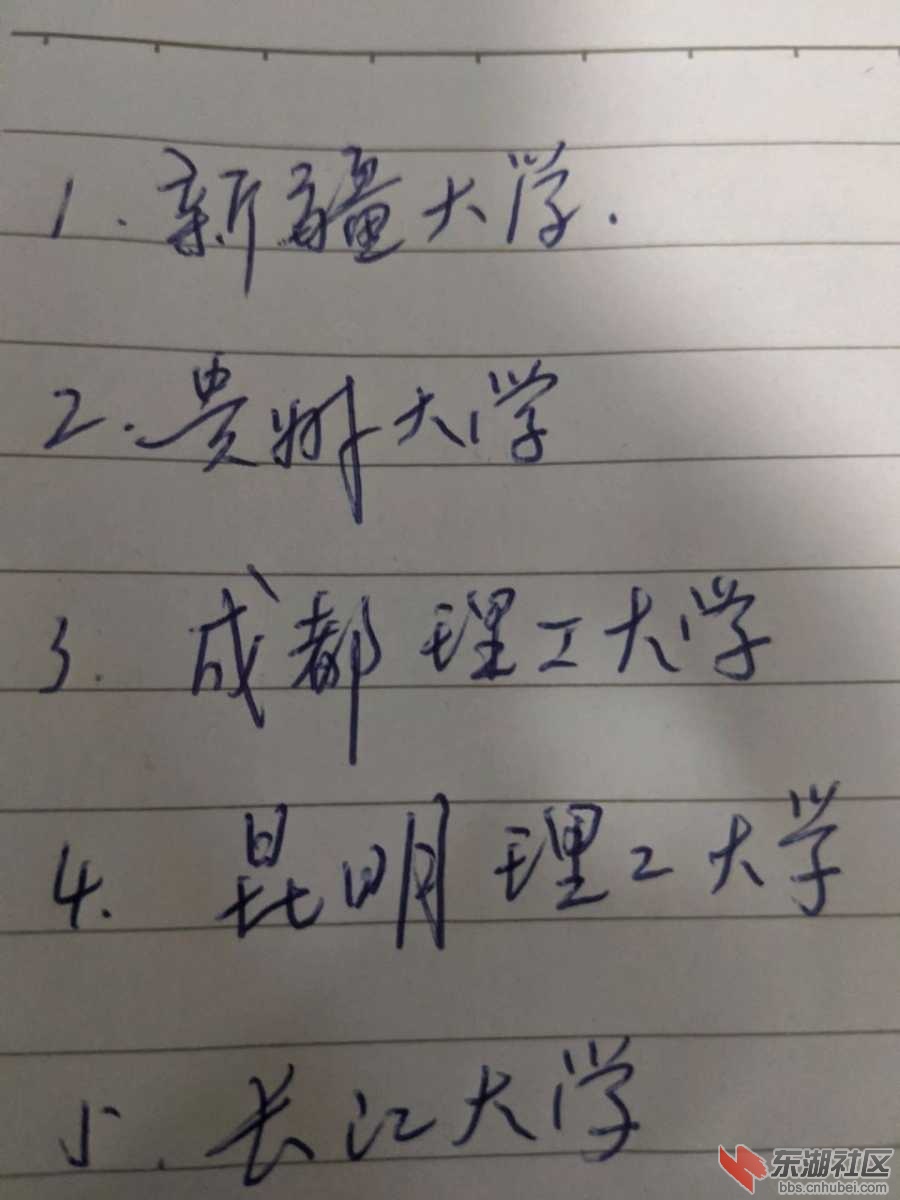 1. 新疆大学.
2. 贵州大学
3. 成都理工大学
4. 昆明理工大学
5. 长江大学
东湖社区
bbs.cnhubei.com